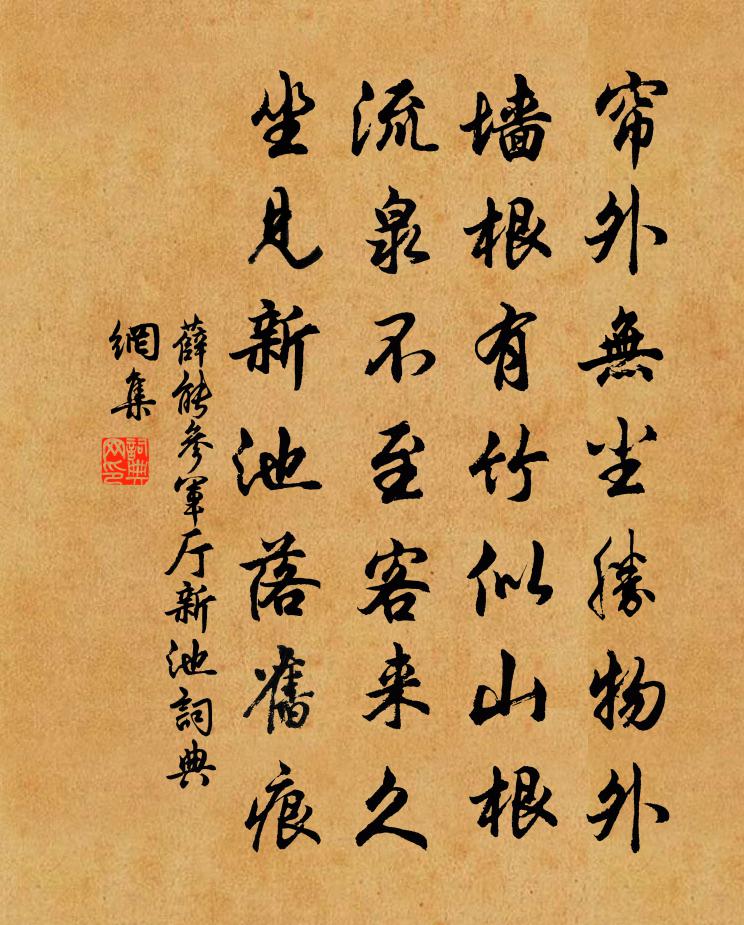 帘外無尘勝物外
墙根有竹似山根
流泉不至客来久
坐见新池落舊痕
薛能参軍厅新池詞典
網集
詞典
网印